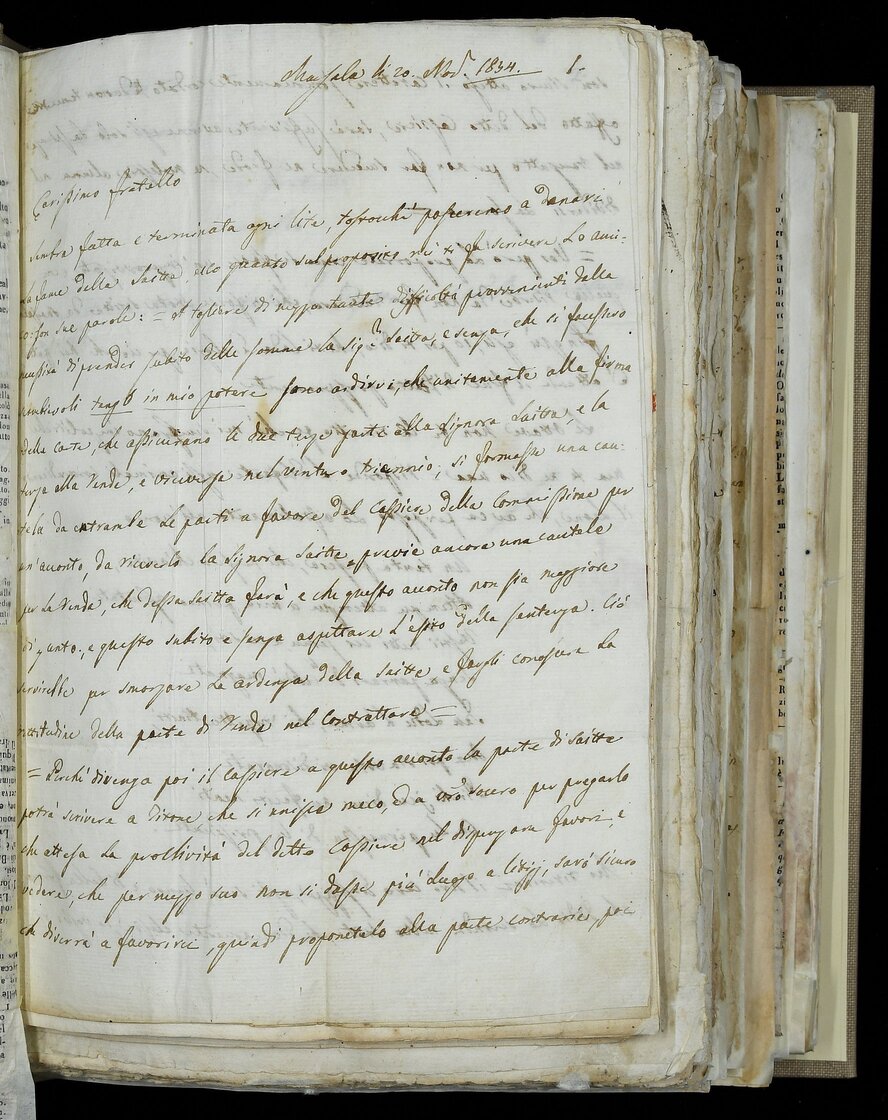 Marsala li 20. Nov. 1834.
Carissimo fratello
Sembra fatta e terminata ogni lite, tostocchè passeremo a danari
la fame della Saitta, ecco quanto sul proposito mi fa scrivere Lo Ani-
con sue parole: = Al togliere di mezzo tante difficoltà provvenienti dalla
necessità di prender subito delle somme la Sig.ra Saitta, e senza, che si facessero
tengo in mio potere farei ardirvi, che unitamente alla firma
delle carte, che assicurano le due terze parti alla Signora Saitta, e la
terza alla Venda, e viceversa nel venturo triennio, si formasse una cau-
tela da entrambe le parti a favore del Cassiere della Comunissima per
un'acconto, da riceverlo la Signora Saitta, previe ancora una cautela
per La Venda, che dessa Saitta farà, e che questo acconto non sia maggiore
di ,, e questo subito e senza aspettare l'esito della sentenza. Ciò
servirebbe per smorzare La ardenza della Saitta e fargli conoscere La
rettitudine della parte di Venda nel Contrattare =
= Perchè divenga poi il Cassiere a questo acconto la parte di Saitta
potrà scrivere a Ditone che si unisca meco, ed a vro socero per pregarlo
che attesa La proclività del detto Cassiere nel dispensare favori, e
vedere, che per mezzo suo non si dasse più luogo a litigj, sarò sicuro
che diverrà a favorirci, quindi proponetelo alla parte contraria, poi